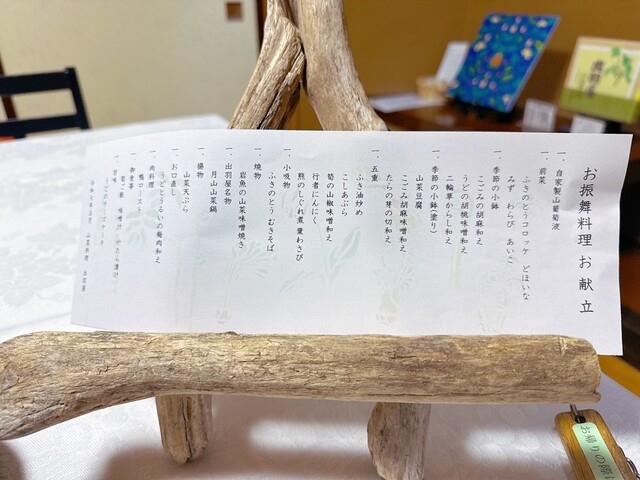 お振舞料理 お献立
一、自家製山葡萄液
一、前菜
ふきのとうコロッケ どほいな
みず わらび あいこ
一、季節の小鉢
こごみの胡麻和え
うどの胡桃味噌和え
二輪草からし和え
一、季節の小鉢(塗り)
山菜豆腐
こごみ胡麻味噌和え
たらの芽の切和え
一、五重
ふき油炒め
こしあぶら
筍の山椒味噌和え
行者にんにく
熊のしぐれ煮 葉わさび
一、小吸物
ふきのとう むきそば
一、焼物
岩魚の山菜味噌焼き
一、出羽屋名物
月山山菜鍋
一、揚物
山菜天ぷら
一、お口直し
うどとうるいの梅肉和え
一、肉料理
鴨ロースト
一、御食事
一、甘味
山菜料理 出羽屋
お帰りの際